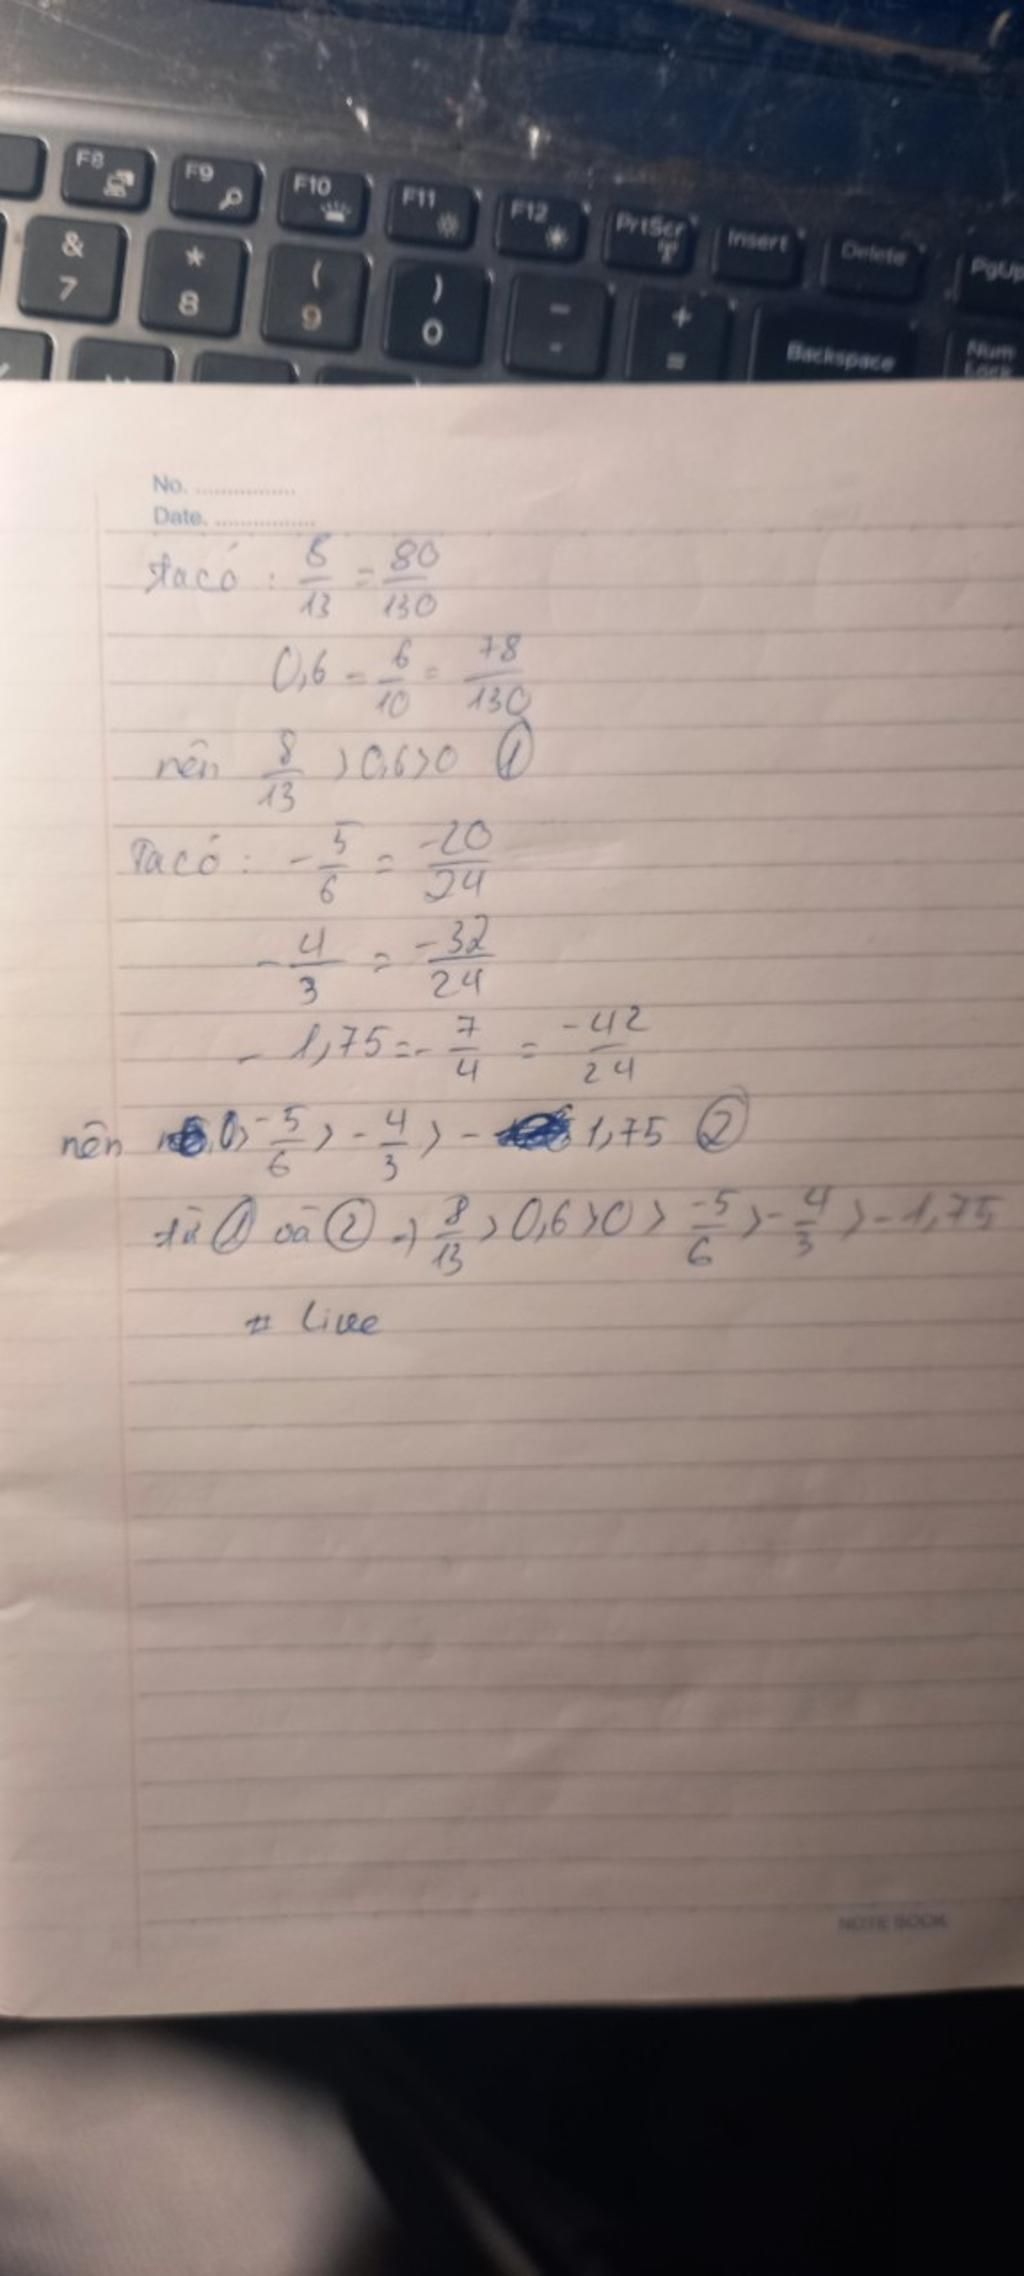 F8 F9 F10 F11 F12 PrtScr Insert Delete PgUp
& 7 * 8 ( 9 ) 0 - - + = Backspace Num Lock
No. ................
Date. ................
Ta có : 8/13 = 80/130
0,6 = 6/10 = 78/130
nên 8/13 > 0,6 > 0 ①
Ta có : - 5/6 = -20/24
- 4/3 = -32/24
- 1,75 = - 7/4 = -42/24
nên 0 > -5/6 > - 4/3 > - 1,75 ②
từ ① và ② => 8/13 > 0,6 > 0 > -5/6 > - 4/3 > - 1,75
# Live
NOTE BOOK